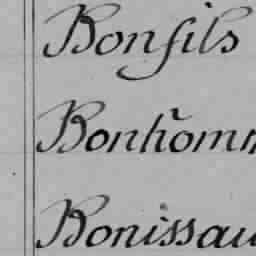 Bonfils
Bonhom
Bonissau